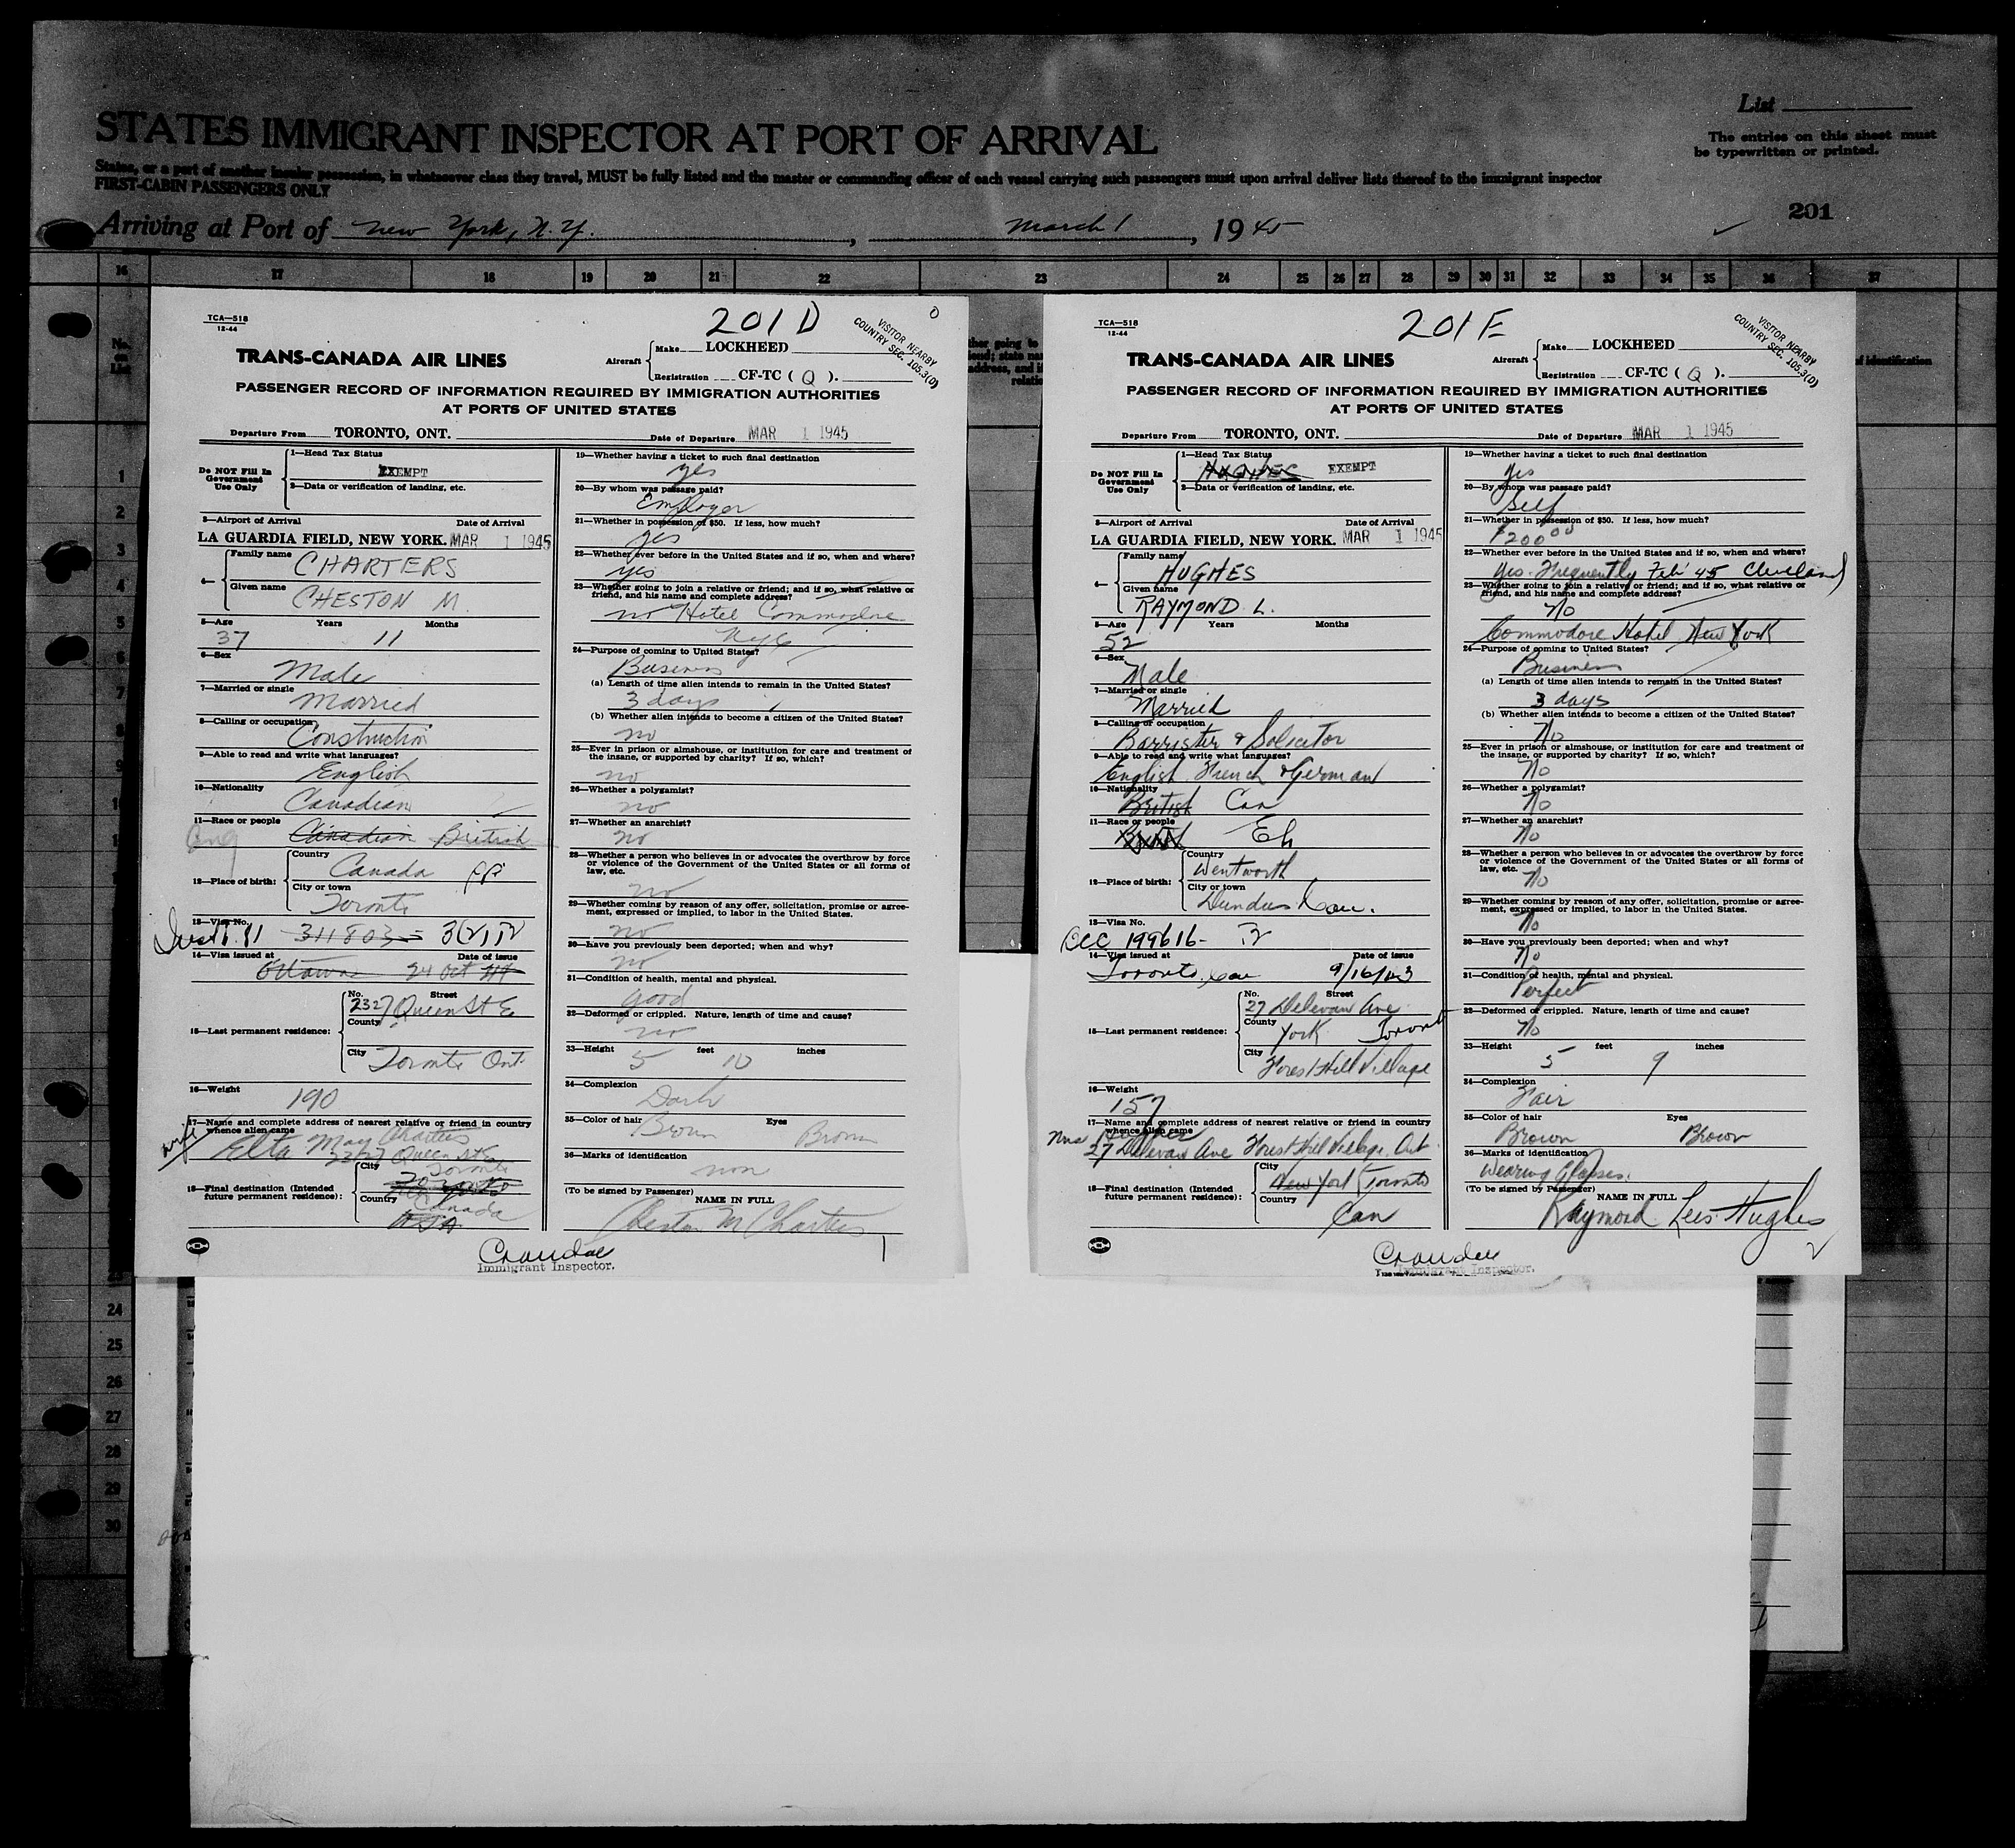 List
STATES IMMIGRANT INSPECTOR AT PORT OF ARRIVAL
The entries on this sheet must
be typewritten or printed.
States, or a part of another insular possession, in whatsoever class they travel, MUST be fully listed and the master or commanding officer of each vessel carrying such passengers must upon arrival deliver lists thereof to the immigrant inspector
FIRST-CABIN PASSENGERS ONLY
201
Arriving at Port of New York, N.Y., March 1, 1945
16 17 18 19 20 21 22 23 24 25 26 27 28 29 30 31 32 33 34 35 36 37
No.
on
List
of identification
1
2
3
4
5
6
7
8
9
24
25
26
27
28
29
30
TCA—518
12-44
201 D
VISITOR NEARBY
COUNTRY SEC. 105.3(D)
TRANS-CANADA AIR LINES
Aircraft
Make LOCKHEED
Registration CF-TC ( Q ).
PASSENGER RECORD OF INFORMATION REQUIRED BY IMMIGRATION AUTHORITIES
AT PORTS OF UNITED STATES
Departure From TORONTO, ONT. Date of Departure MAR 1 1945
Do NOT Fill In
Government
Use Only
1—Head Tax Status
EXEMPT
2—Data or verification of landing, etc.
3—Airport of Arrival Date of Arrival
LA GUARDIA FIELD, NEW YORK. MAR 1 1945
4—
Family name
CHARTERS
Given name
CHESTON M.
5—Age Years Months
37 11
6—Sex
Male
7—Married or single
Married
8—Calling or occupation
Construction
9—Able to read and write what languages?
English
10—Nationality
Canadian
11—Race or people
Eng Canadian British
12—Place of birth:
Country
Canada
City or town
Toronto
13—Visa No.
311803 = 3(2) T2
14—Visa issued at Date of issue
Ottawa 24 Oct 44
15—Last permanent residence:
No. Street
2327 Queen St E
County
City
Toronto Ont.
16—Weight
190
17—Name and complete address of nearest relative or friend in country
whence alien came
wife Elta May Charters
2327 Queen St E
18—Final destination (Intended
future permanent residence):
City
Toronto
Country
Canada
USA
19—Whether having a ticket to such final destination
yes
20—By whom was passage paid?
Employer
21—Whether in possession of $50. If less, how much?
yes
22—Whether ever before in the United States and if so, when and where?
yes
23—Whether going to join a relative or friend; and if so, what relative or
friend, and his name and complete address?
no Hotel Commodore
NYC
24—Purpose of coming to United States?
Business
(a) Length of time alien intends to remain in the United States?
3 days
(b) Whether alien intends to become a citizen of the United States?
no
25—Ever in prison or almshouse, or institution for care and treatment of
the insane, or supported by charity? If so, which?
no
26—Whether a polygamist?
no
27—Whether an anarchist?
no
28—Whether a person who believes in or advocates the overthrow by force
or violence of the Government of the United States or all forms of
law, etc.
no
29—Whether coming by reason of any offer, solicitation, promise or agree-
ment, expressed or implied, to labor in the United States.
no
30—Have you previously been deported; when and why?
no
31—Condition of health, mental and physical.
good
32—Deformed or crippled. Nature, length of time and cause?
no
33—Height feet inches
5 10
34—Complexion
Dark
35—Color of hair Eyes
Brown Brown
36—Marks of identification
non
(To be signed by Passenger)
NAME IN FULL
Cheston M Charters
Immigrant Inspector.
1
TCA—518
12-44
201 E
VISITOR NEARBY
COUNTRY SEC. 105.3(D)
TRANS-CANADA AIR LINES
Aircraft
Make LOCKHEED
Registration CF-TC ( Q ).
PASSENGER RECORD OF INFORMATION REQUIRED BY IMMIGRATION AUTHORITIES
AT PORTS OF UNITED STATES
Departure From TORONTO, ONT. Date of Departure MAR 1 1945
Do NOT Fill In
Government
Use Only
1—Head Tax Status
HUGHES EXEMPT
2—Data or verification of landing, etc.
3—Airport of Arrival Date of Arrival
LA GUARDIA FIELD, NEW YORK. MAR 1 1945
4—
Family name
HUGHES
Given name
RAYMOND L.
5—Age Years Months
52
6—Sex
Male
7—Married or single
Married
8—Calling or occupation
Barrister & Solicitor
9—Able to read and write what languages?
English French & German
10—Nationality
British Can
11—Race or people
British Eh
12—Place of birth:
Country
Wentworth
City or town
Dundas Can.
13—Visa No.
BCC 199616- T2
14—Visa issued at Date of issue
Toronto, Can 9/16/43
15—Last permanent residence:
No. Street
27 Delevan Ave
County
York Toronto
City
Forest Hill Village
16—Weight
157
17—Name and complete address of nearest relative or friend in country
whence alien came
Mrs Hughes
27 Delevan Ave Forest Hill Village, Ont
18—Final destination (Intended
future permanent residence):
City
New York Toronto
Country
Can
19—Whether having a ticket to such final destination
yes
20—By whom was passage paid?
Self
21—Whether in possession of $50. If less, how much?
$200 00
22—Whether ever before in the United States and if so, when and where?
yes. Frequently Feb' 45 Cleveland
23—Whether going to join a relative or friend; and if so, what relative or
friend, and his name and complete address?
No
Commodore Hotel New York
24—Purpose of coming to United States?
Business
(a) Length of time alien intends to remain in the United States?
3 days
(b) Whether alien intends to become a citizen of the United States?
No
25—Ever in prison or almshouse, or institution for care and treatment of
the insane, or supported by charity? If so, which?
No
26—Whether a polygamist?
No
27—Whether an anarchist?
No
28—Whether a person who believes in or advocates the overthrow by force
or violence of the Government of the United States or all forms of
law, etc.
No
29—Whether coming by reason of any offer, solicitation, promise or agree-
ment, expressed or implied, to labor in the United States.
No
30—Have you previously been deported; when and why?
No
31—Condition of health, mental and physical.
Perfect
32—Deformed or crippled. Nature, length of time and cause?
No
33—Height feet inches
5 9
34—Complexion
Fair
35—Color of hair Eyes
Brown Brown
36—Marks of identification
Wearing Glasses.
(To be signed by Passenger)
NAME IN FULL
Raymond Lees Hughes
Immigrant Inspector.
2